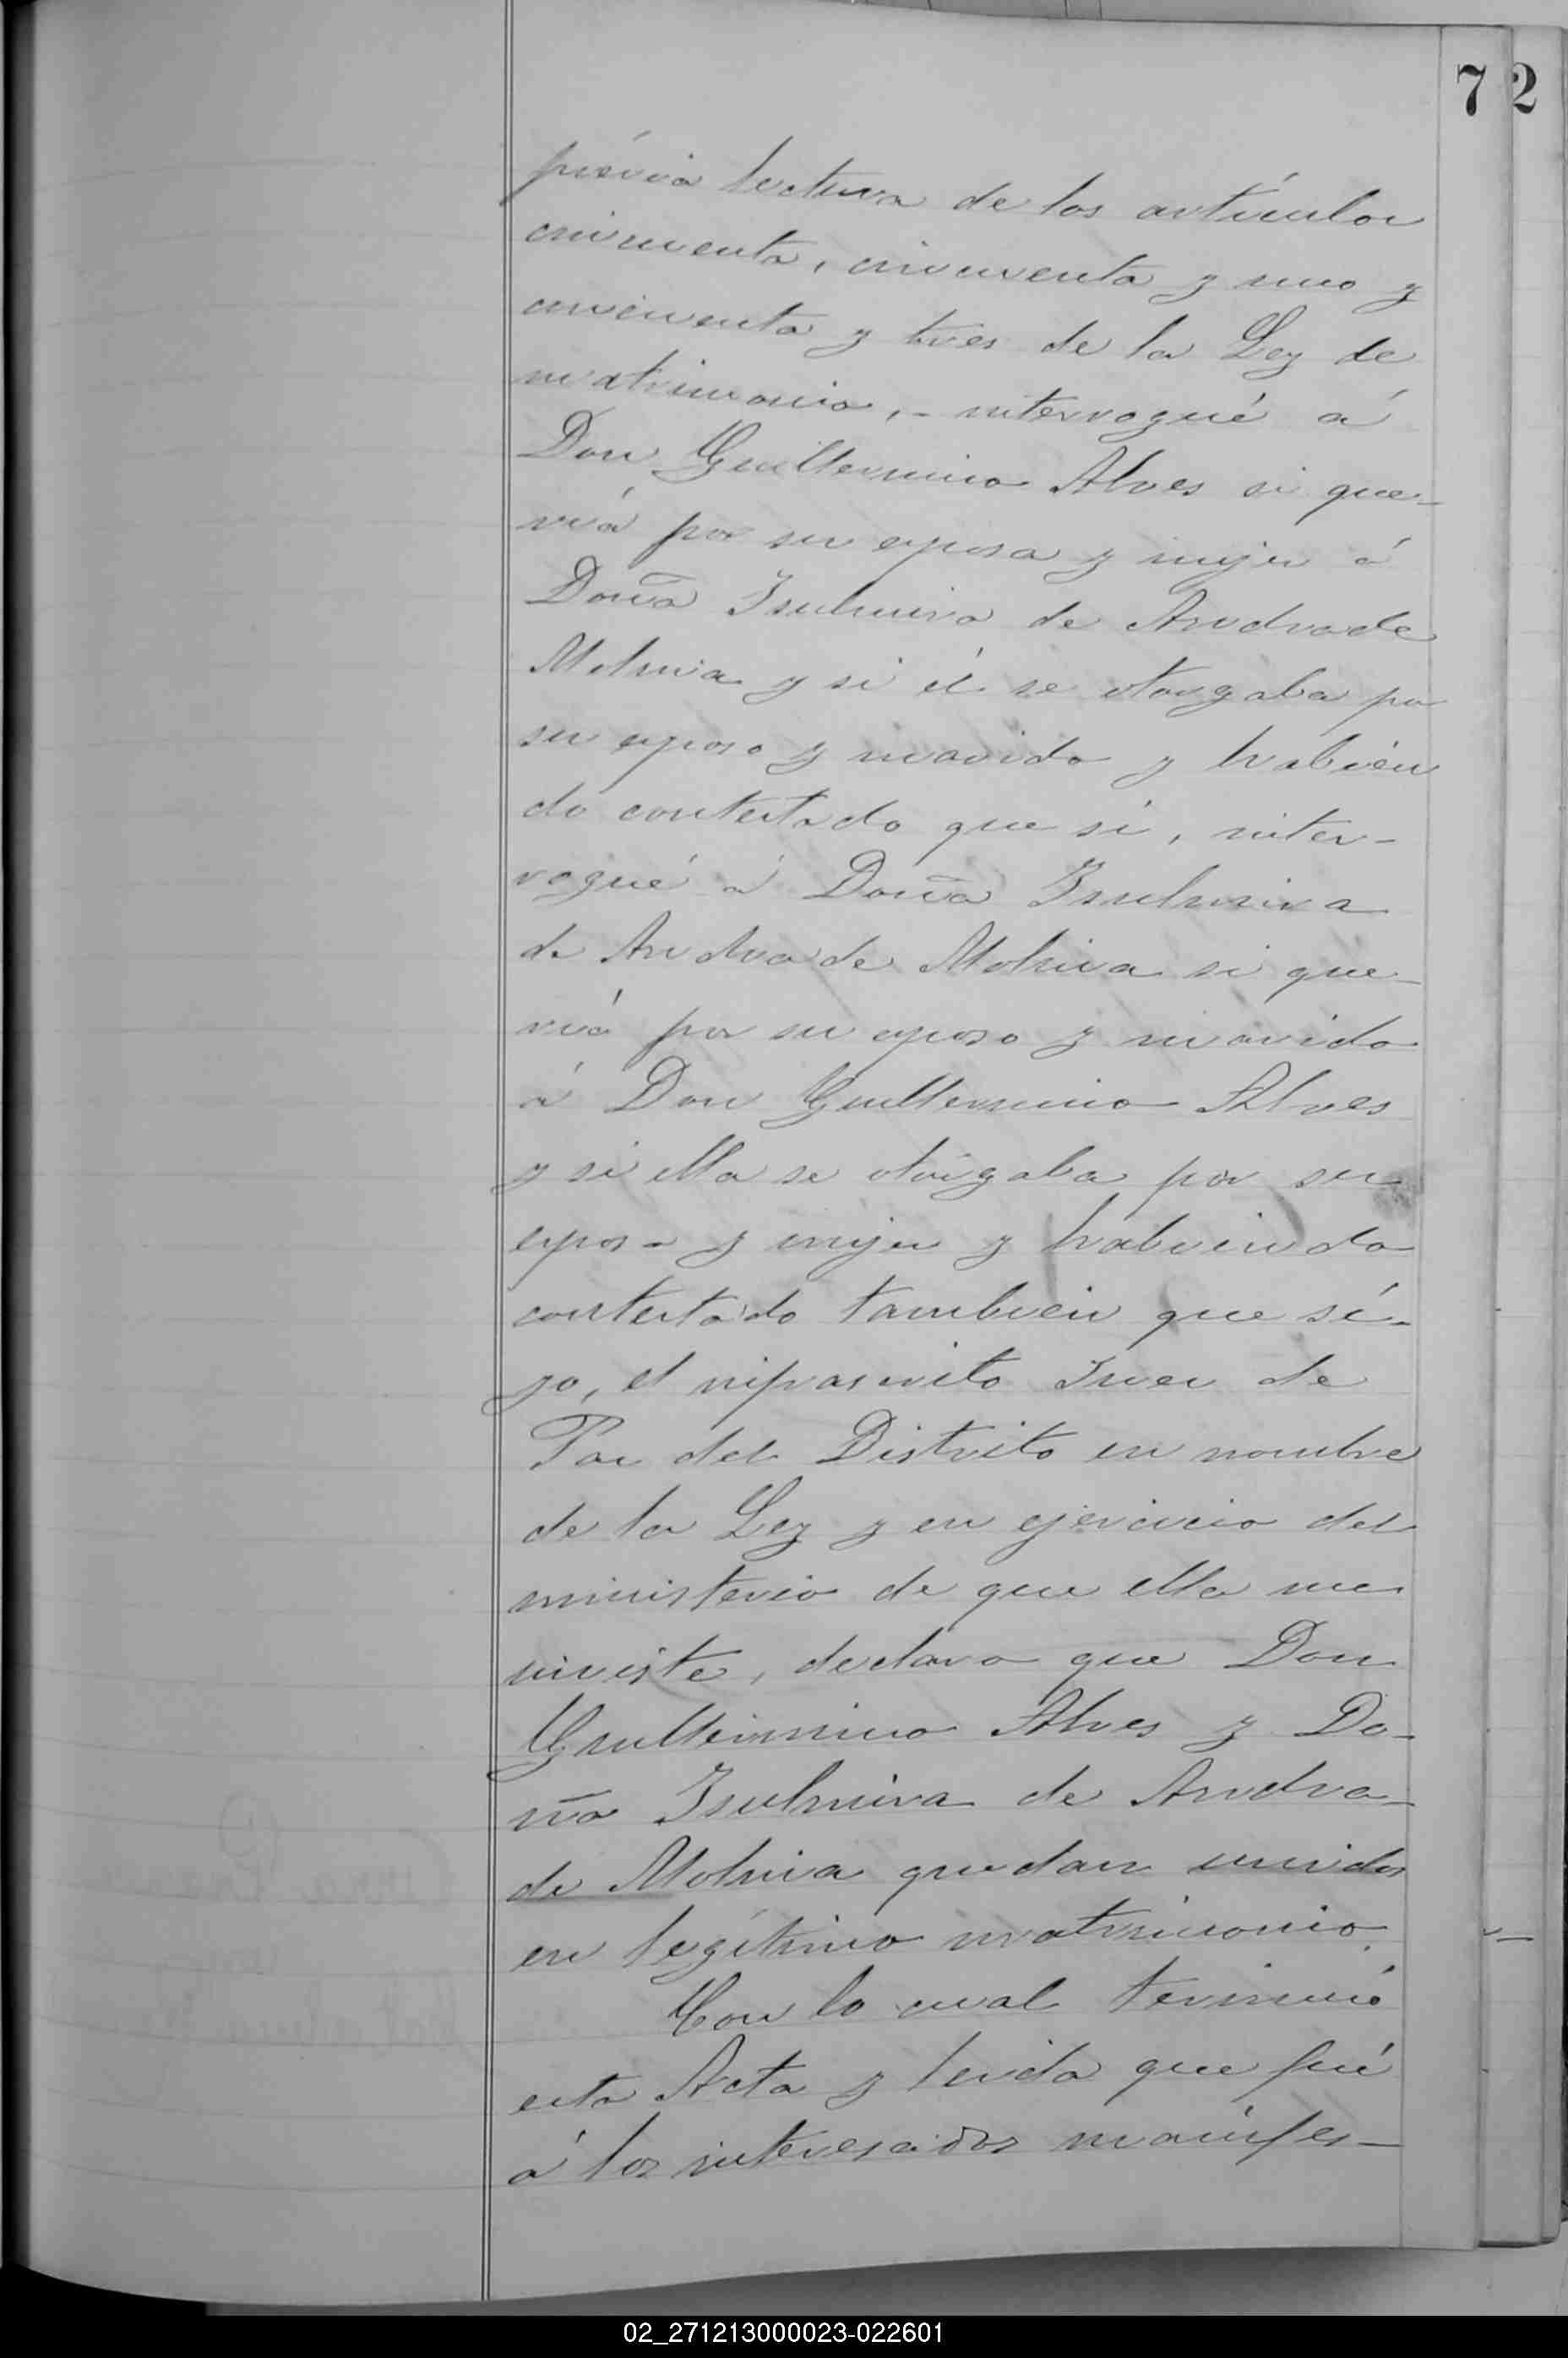 7 2
prévia lectura de los artículos
cincuenta, cincuenta y uno y
cincuenta y tres de la Ley de
matrimonio, - interrogué á
Don Guillermino Alves si que-
ría por su esposa y mujer á
Doña Isulmira de Andrade
Molina y si él se otorgaba por
su esposo y marido y habién
do contestado que sí, inter-
rogué á Doña Isulmira
de Andrade Molina si que-
ría por su esposo y marido
á Don Guillermino Alves
y si ella se otorgaba por su
esposa y mujer y habiendo
contestado tambien que sí-
yo, el infrascrito Juez de
Paz del Distrito en nombre
de la Ley y en ejercicio del
ministerio de que ella me
inviste, declaro que Don
Guillermino Alves y Do-
ña Isulmira de Andra-
de Molina quedan unidos
en legítimo matrimonio.
Con lo cual terminó
esta Acta y leida que fué
á los interesados manifes-
02_271213000023-022601